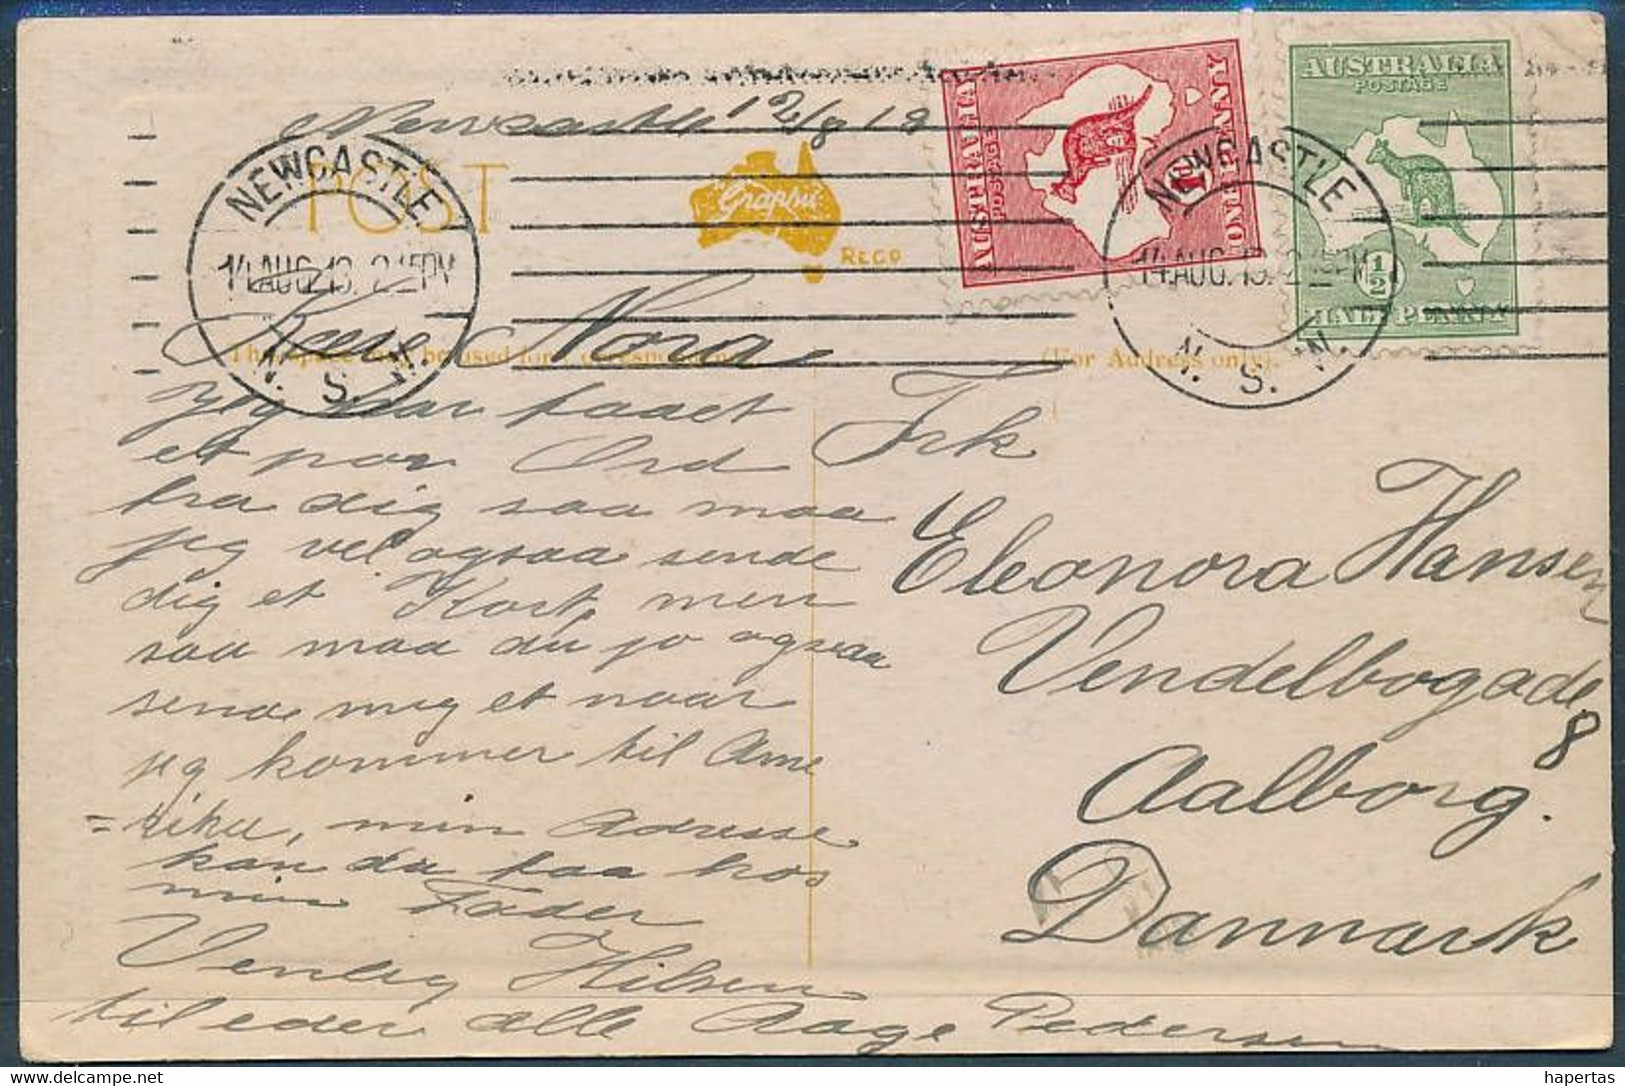 Newcastle 12/8 13
POST
Graphic
REGD
AUSTRALIA
POSTAGE
1
ONE PENNY
AUSTRALIA
POSTAGE
1/2
HALF PENNY
NEWCASTLE
14 AUG. 13. 2.15 PM
N. S. W.
NEWCASTLE
14 AUG. 13. 2.15 PM
N. S. W.
(For Address only).
Kære Nora
Jeg har faaet
et par Ord
fra dig saa maa
jeg vel ogsaa sende
dig et Kort, men
saa maa du jo ogsaa
sende mig et naar
jeg kommer til Ame
=rika, min Adresse
kan du faa hos
min Fader
Venlig Hilsen
til eder alle Aage Pedersen
Frk
Eleonora Hansen
Vendelbogade
8
Aalborg.
Danmark
hapertas
delcampe.net